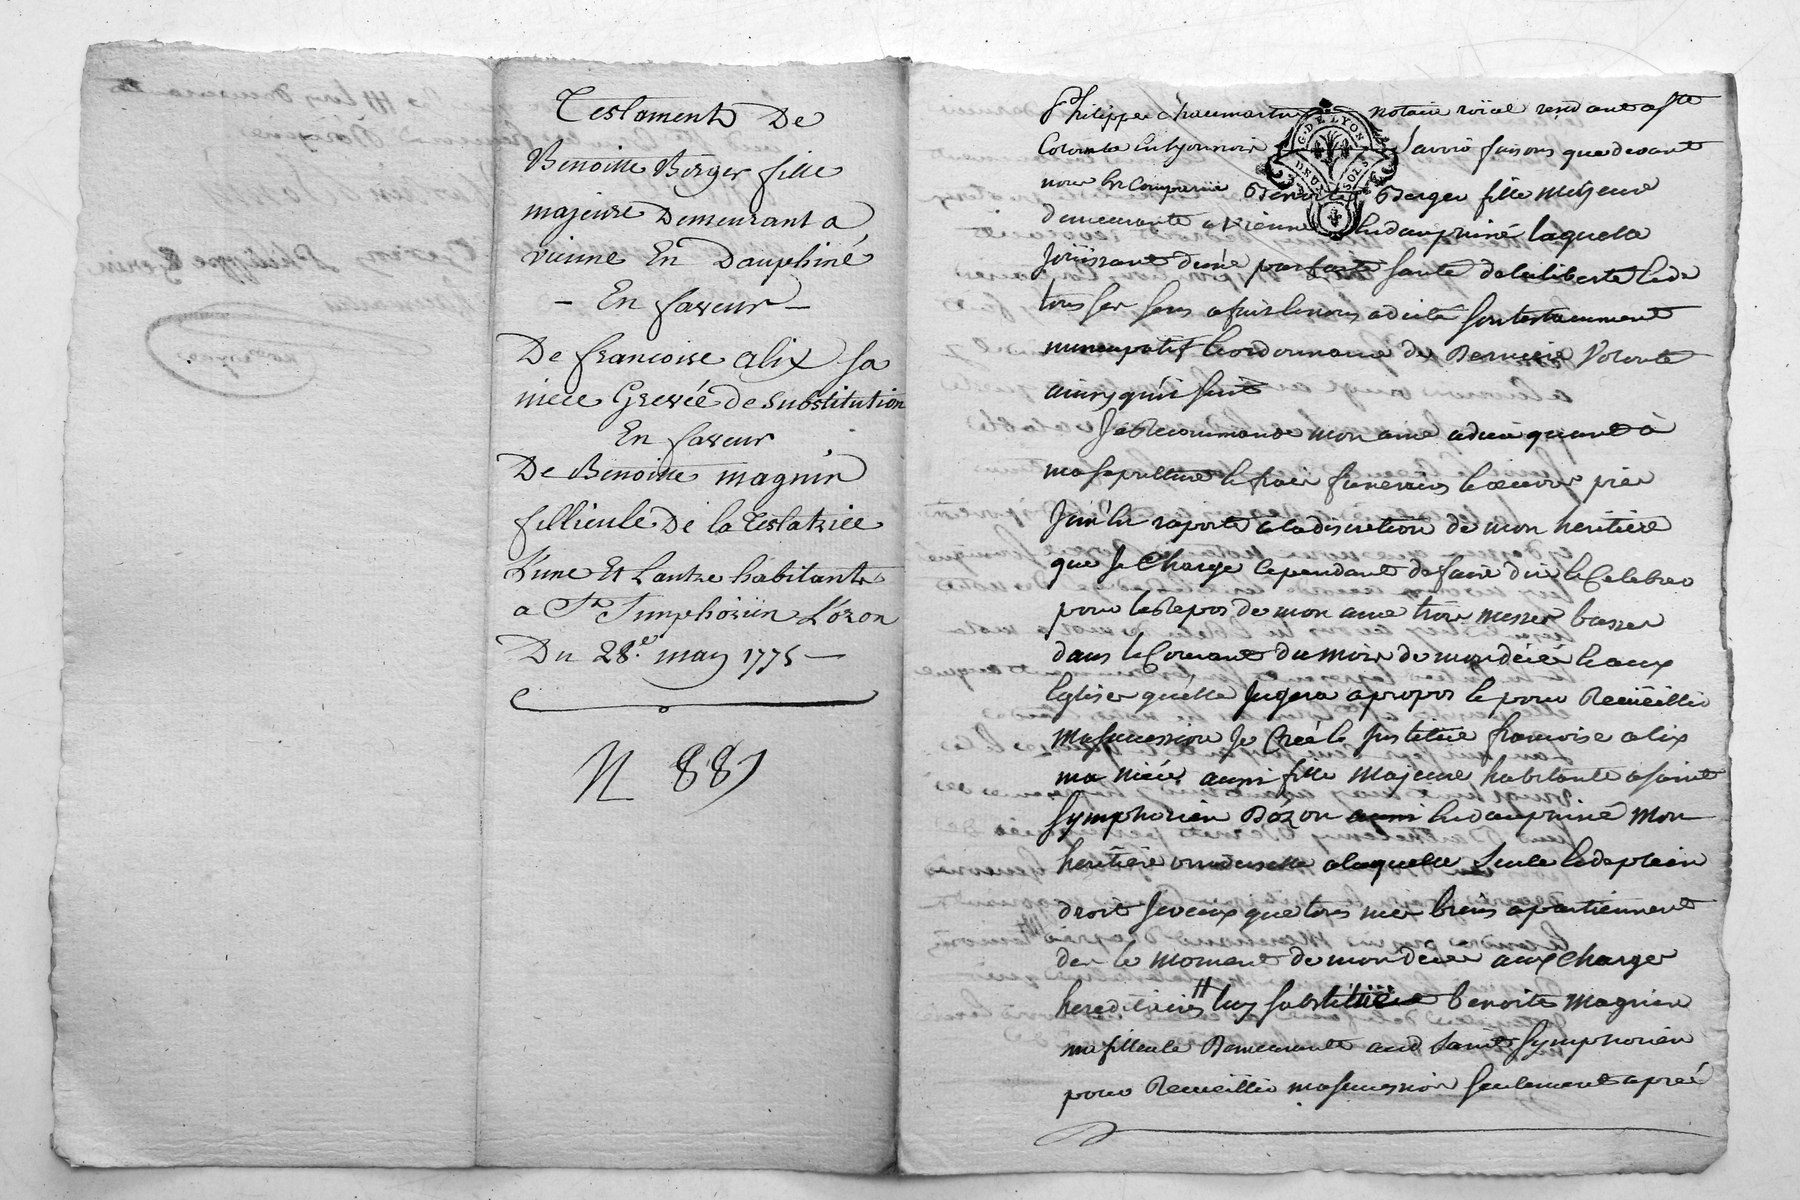 Testament De
Benoitte Berger fille
majeure Demeurant a
vienne En Dauphiné
- En faveur -
De francoise alix sa
niece Grevée de Substitution
En faveur
De Benoitte magnin
fillieule De la Testatrice
L'une Et Lautre habitante
a St. Simphorien D'ozon
Du 28e. may 1775 —
N 889
Philippe Chaumartin notaire roïal residant a ste
Colombe en lyonnois savoir faisons que devant
nous est Comparüe Benoite Berger fille Majeure
demeurante a Vienne en dauphiné laquelle
Jöüissant d'une parfaite santé de la liberté et de
tous ses sens a fait et nous a dicté son testamment
nuncupatif et ordonnance de Derniere Volonté
ainsy qu'il suit
Je Recommande mon ame a dieu quant à
ma sepulture et frais funeraires et œuvres pies
Je m'en raporte a la discretion de mon heritiere
que Je Charge Cependant de faire dire et Celebrer
pour le Repos de mon ame trois messes basses
dans le Courant du mois de mon décés et aux
Eglises qu'elle Jugera apropos et pour Recüeillir
ma succession Je Crée et Institue francoise alix
ma niéce aussi fille Majeure habitante a saint
Symphorien Dozon en dauphiné Mon
heritiere universelle a laquelle Seule et de plein
droit Je veux que tous mes biens apartiennent
des le moment de mon deces aux Charges
hereditaires # luy substitüe benoite Magnin
ma filleule Demeurante aud Saint Symphorien
pour Recueillir ma succession seulement aprés
G. DE LYON
DEUX SOLS